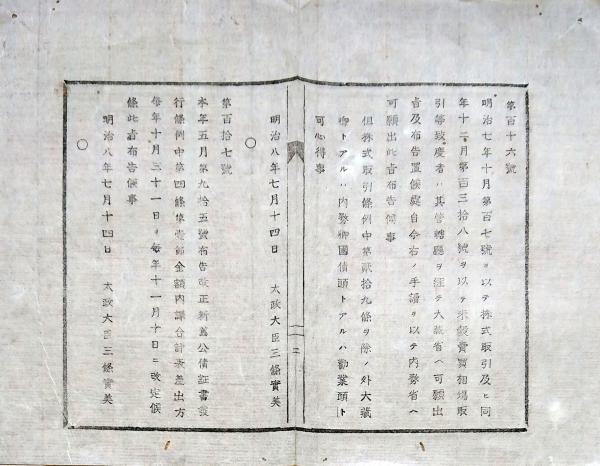 第百十六號
明治七年十月第百七號ヲ以テ株式取引及ヒ同
年十二月第百三拾八號ヲ以テ米穀賣買相場取
引等致度者ハ其管轄廳ヲ經テ大藏省ヘ可願出
旨及布告置候處自今右ノ手續ヲ以テ内務省ヘ
可願出此旨布告候事
但株式取引條例中第貳拾九條ヲ除ノ外大藏
卿トアルハ内務卿國債頭トアルハ勸業頭ト
可心得事
明治八年七月十四日 太政大臣三條實美
○
第百拾七號
本年五月第九拾五號布告改正新舊公債証書發
行條例中第四條第壹節金額内譯合計表差出方
毎年十月三十一日ヲ毎年十一月十日ニ改定候
條此旨布告候事
明治八年七月十四日 太政大臣三條實美
○